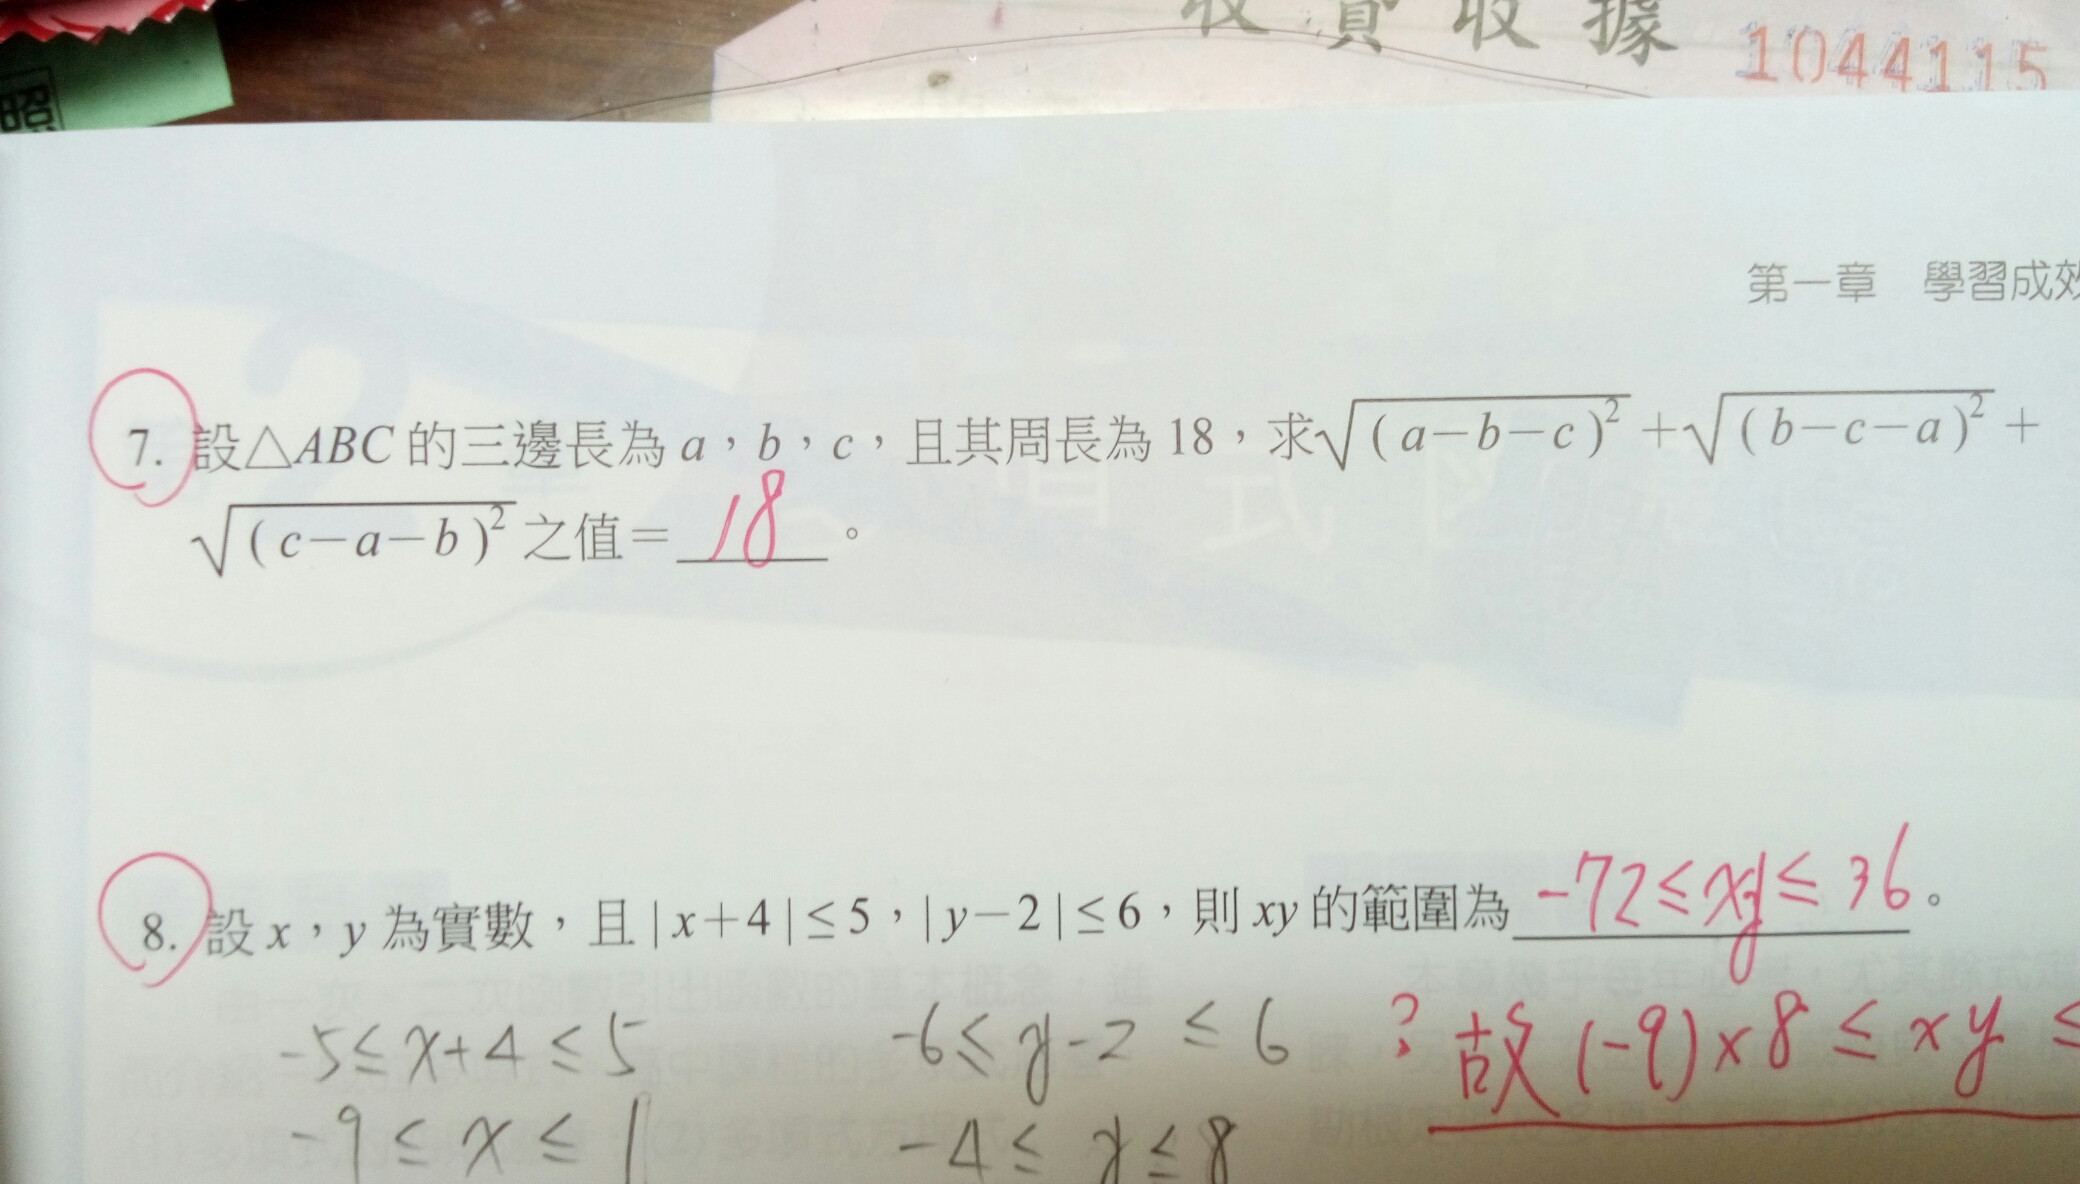 收費收據 1044115
照
第一章 學習成效
7. 設△ABC 的三邊長為 a，b，c，且其周長為 18，求√(a－b－c)² ＋√(b－c－a)² ＋
√(c－a－b)² 之值＝ 18 。
8. 設 x，y 為實數，且 |x＋4|≤5，|y－2|≤6，則 xy 的範圍為 -72≤xy≤36 。
-5≤x+4≤5 -6≤y-2≤6 ? 故(-9)×8≤xy≤
-9≤x≤1 -4≤y≤8